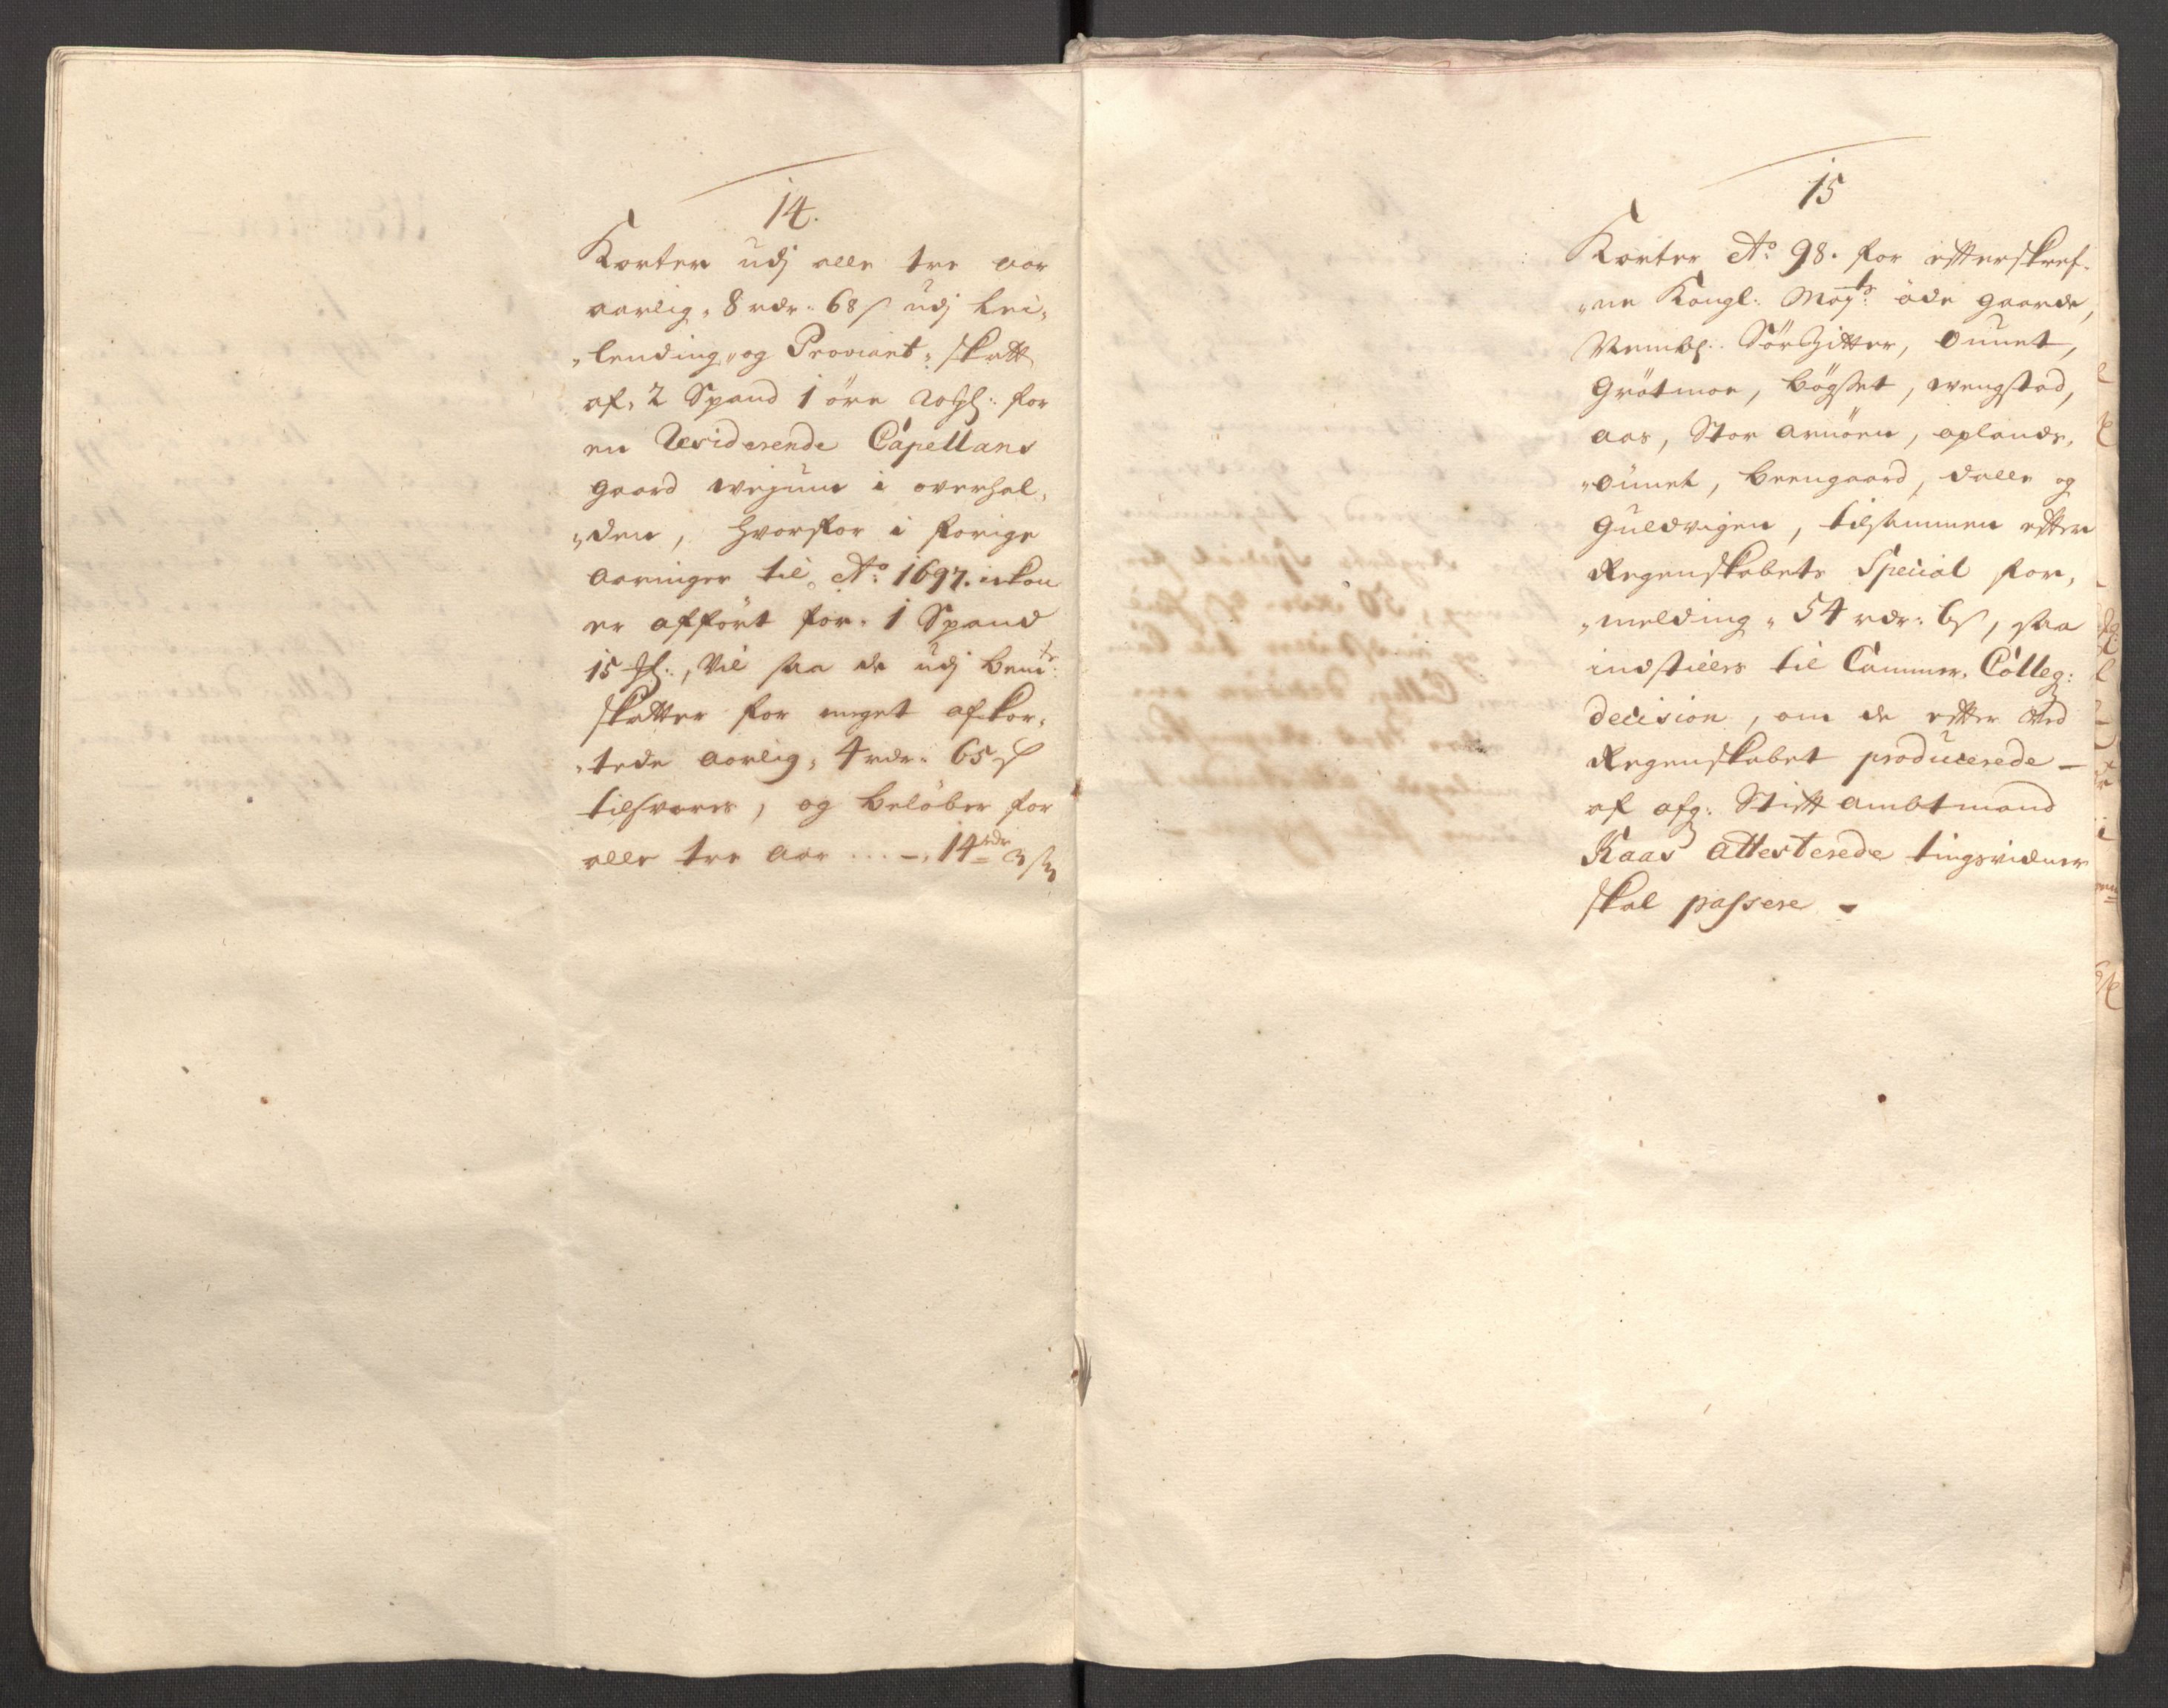 14.
Korter udj alle tre aar
aarlig, 8 rdr: 68 s udj Lei,
„lending„ og Proviant„ skatt
af, 2 Spand 1 öre for
en Residerende Capellans
gaard wejum i overhal,
„den, hvorfor i forige
aaringer til A:o 1697. ickon
er afført for. 1 Spand
15 , vil saa de udj bem:te
skatter for meget afkor,
„tede aarlig, 4 rdr: 65 s
tilsvares, og belöber for
alle tre aar ... –. 14 rdr 3 s
15
Korter A:o 98. for efterskref,
„ne Kongl: May:ts öde gaarde,
Nembl: Sör Hitter, ounet,
Grötmoe, bögset, wengstad,
aas, Stor arnöen, oplands,
„öunet, beengaard, dalle og
Guldvigen, tilsammen efter
Regenskabets Special for,
„melding „ 54 rdr: 6 s, saa
indstilles til Cammer. Colleg:
decision, om de efter ved
Regenskabet producerede –
af afg: Stift ambtmand
Kaas attesterede tingsvidner
skal passere –